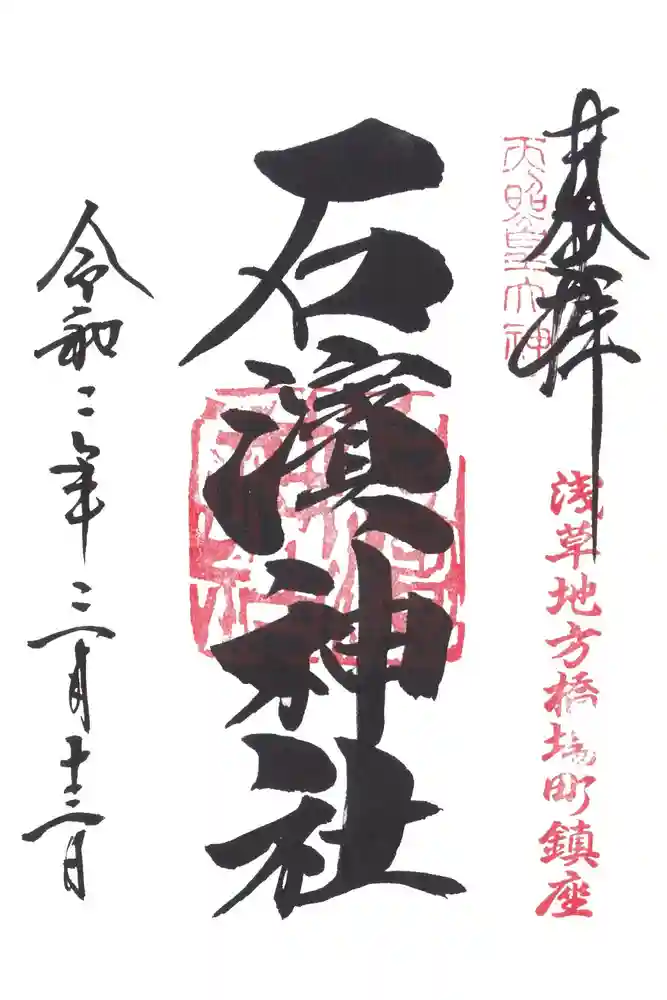 奉拝
天照皇大神
浅草地方橋場町鎮座
石濱神社
令和二年三月十三日